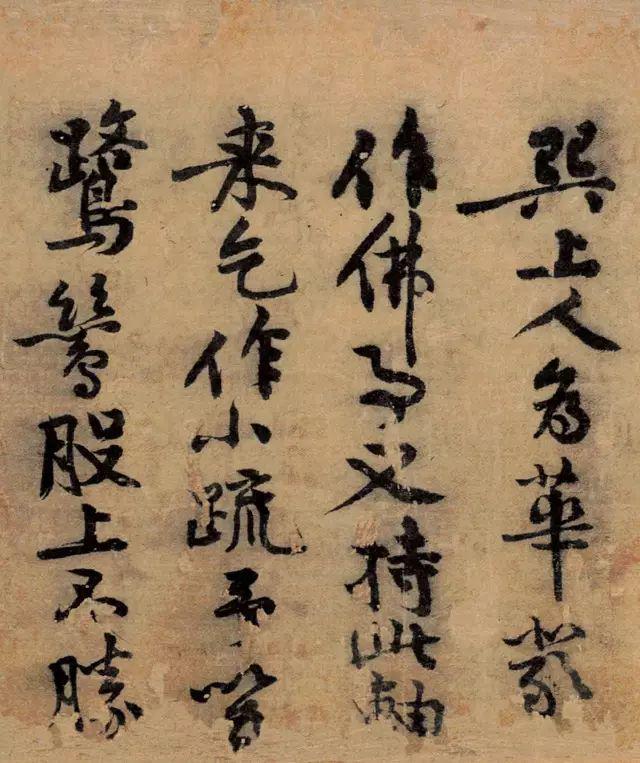 巽上人為華嚴
作佛事又持此軸
来乞作小疏不啻
鷺鷥股上不勝